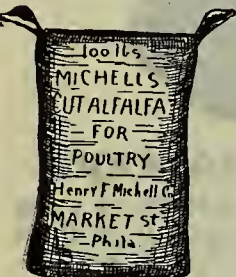 100 lbs
MICHELLS
CUT ALFALFA
FOR
POULTRY
Henry F Michell C.
MARKET St
Phila.